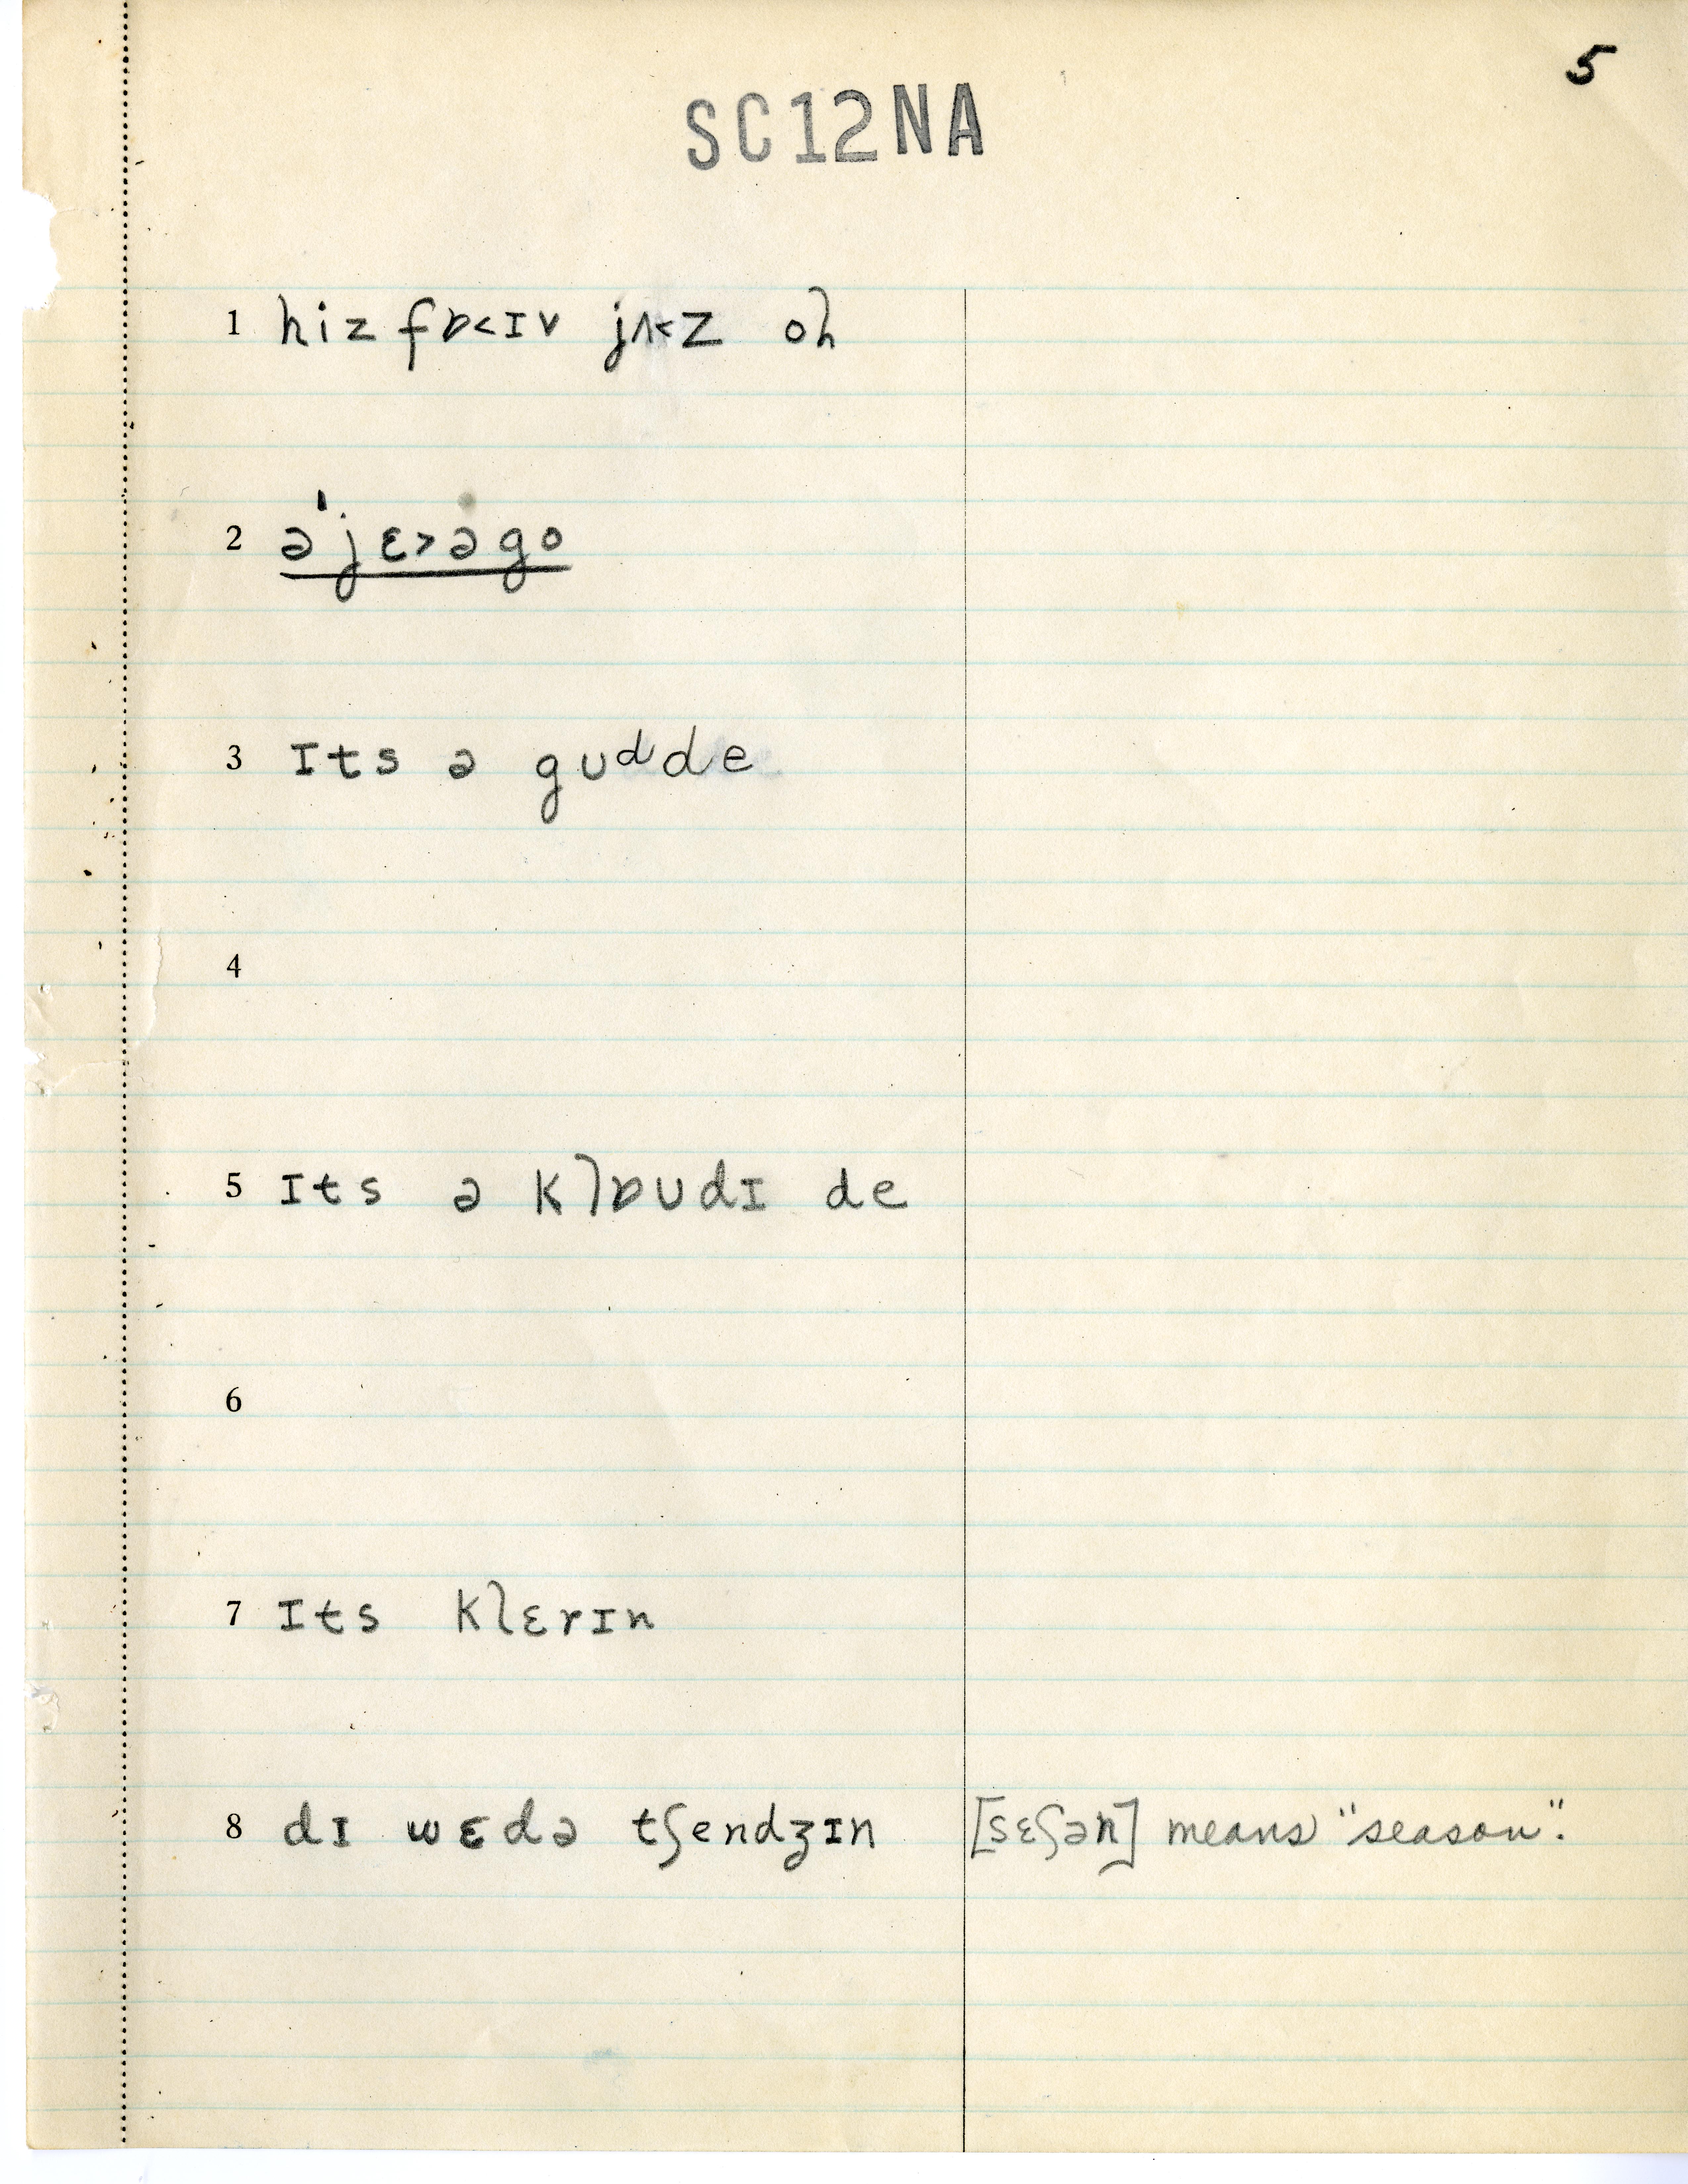 5
SC12NA
1 hiz fɒ˂ɪv jʌ˂z oɫ
2 ə'jɛ˃əgo
3 ɪts ə gʊᵈde
4
5 ɪts ə klɒʊdɪ de
6
7 ɪts klɛrɪn
8 dɪ wɛdə tʃendʒɪn [sɛʃən] means "season".